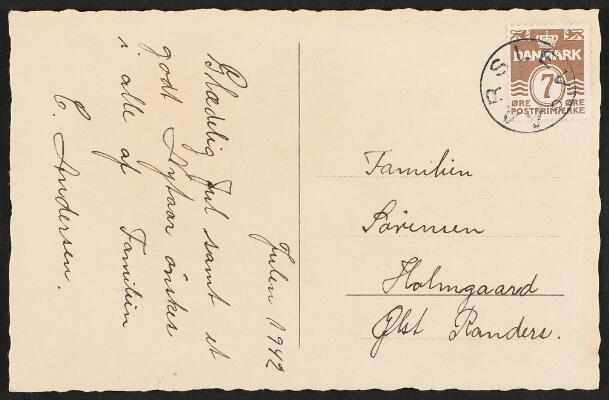 Julen 1942
Glædelig Jul samt et
godt Nytaar ønskes
i alle af Familien
C. Andersen.
DANMARK
7
ØRE ØRE
POSTFRIMÆRKE
Familien
Sørensen
Holmgaard
Ølst Randers.